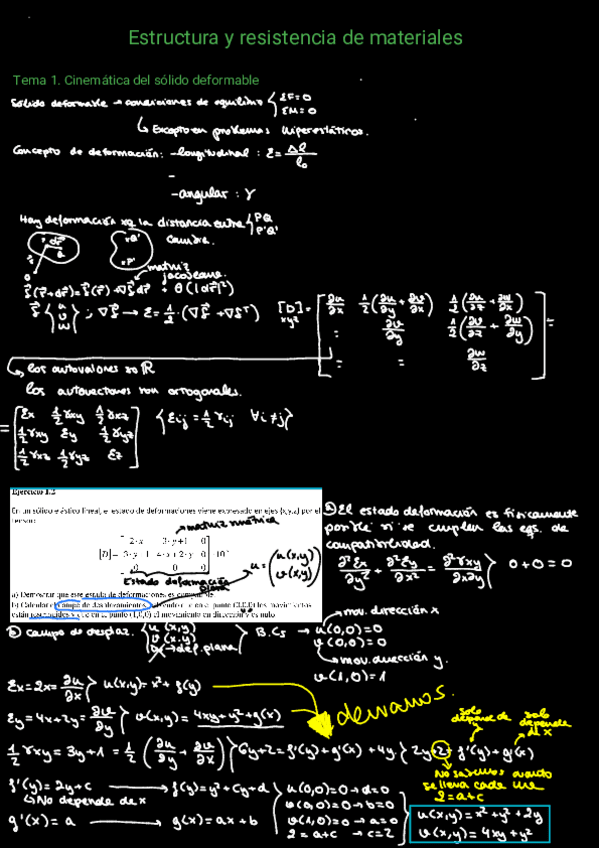 Estructura y resistencia de materiales
Tema 1. Cinemática del sólido deformable
Sólido deformable → condiciones de equilibrio { ΣF=0
ΣM=0
↳ Excepto en problemas hiperestáticos.
Concepto de deformación: -longitudinal : ε = Δl / l₀
-
-angular : γ
Hay deformación xq la distancia entre { PQ
P'Q'
cambia.
matriz
jacobeana.
δ(r+dr) = δ(r) + ∇δ dr + θ(|dr|²)
δ {u v w} ; ∇δ → ε = 1/2 · (∇δ + ∇δᵀ) [D]xyz =
∂u/∂x 1/2(∂u/∂y + ∂v/∂x) 1/2(∂u/∂z + ∂w/∂x)
= ∂v/∂y 1/2(∂v/∂z + ∂w/∂y) =
= = ∂w/∂z
↳ los autovalores so ℝ
los autovectores son ortogonales.
= [ εx 1/2 γxy 1/2 γxz
1/2 γxy εy 1/2 γyz
1/2 γxz 1/2 γyz εz ] { εij = 1/2 γij ∀i≠j }
Ejercicio 1.2
En un sólido elástico lineal, el estado de deformaciones viene expresado en ejes {x,y,z} por el
tensor:
matriz simétrica
2·x 3·y+1 0
[D] = 3·y+1 4·x+2·y 0 ·10
0 0 0
Estado deformación
plana
u = ( u(x,y)
v(x,y) )
a) Demostrar que este estado de deformaciones es compatible
b) Calcular el campo de desplazamientos sabiendo que en el punto (0,0,0) los movimientos
están impedidos y que en el punto (1,0,0) el movimiento en dirección y es nulo
a) El estado deformación es físicamente
posible si se cumplen las eqs. de
compatibilidad.
∂²εx/∂y² + ∂²εy/∂x² = ∂²γxy/∂x∂y } 0+0=0
b) campo de desplaz. { u(x,y)
v(x,y)
0 → def. plana } B.Cs → u(0,0)=0
v(0,0)=0
mov. dirección x
↳ mov. dirección y.
v(1,0)=1
εx = 2x = ∂u/∂x } u(x,y) = x² + f(y)
εy = 4x+2y = ∂v/∂y } v(x,y) = 4xy+y²+g(x)
derivamos.
solo depende de y
solo depende de x
1/2 γxy = 3y+1 = 1/2 (∂u/∂y + ∂v/∂x) } 6y+2 = f'(y)+g'(x) + 4y { 2y+2 = f'(y)+g'(x)
No sabemos cuanto
se lleva cada una
2=a+c
f'(y) = 2y+c → f(y) = y²+cy+d
↳ No depende de x
g'(x) = a → g(x) = ax+b
u(0,0)=0 → d=0
v(0,0)=0 → b=0
v(1,0)=0 → a=0
2=a+c → c=2
u(x,y) = x²+y²+2y
v(x,y) = 4xy+y²